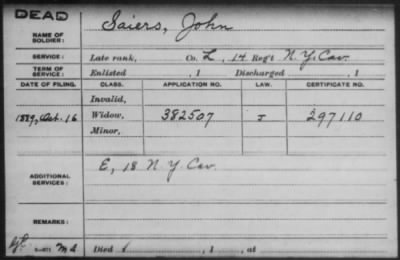 DEAD
NAME OF SOLDIER: Saiers, John
SERVICE: Late rank, Co. L, 14 Reg't N.Y. Cav.
TERM OF SERVICE: Enlisted , 1 Discharged , 1
DATE OF FILING. CLASS. APPLICATION NO. LAW. CERTIFICATE NO.
Invalid,
1889, Oct. 16 Widow, 382507 J 297110
Minor,
ADDITIONAL SERVICES: E, 18 N.Y. Cav.
REMARKS:
Died , 1 , at